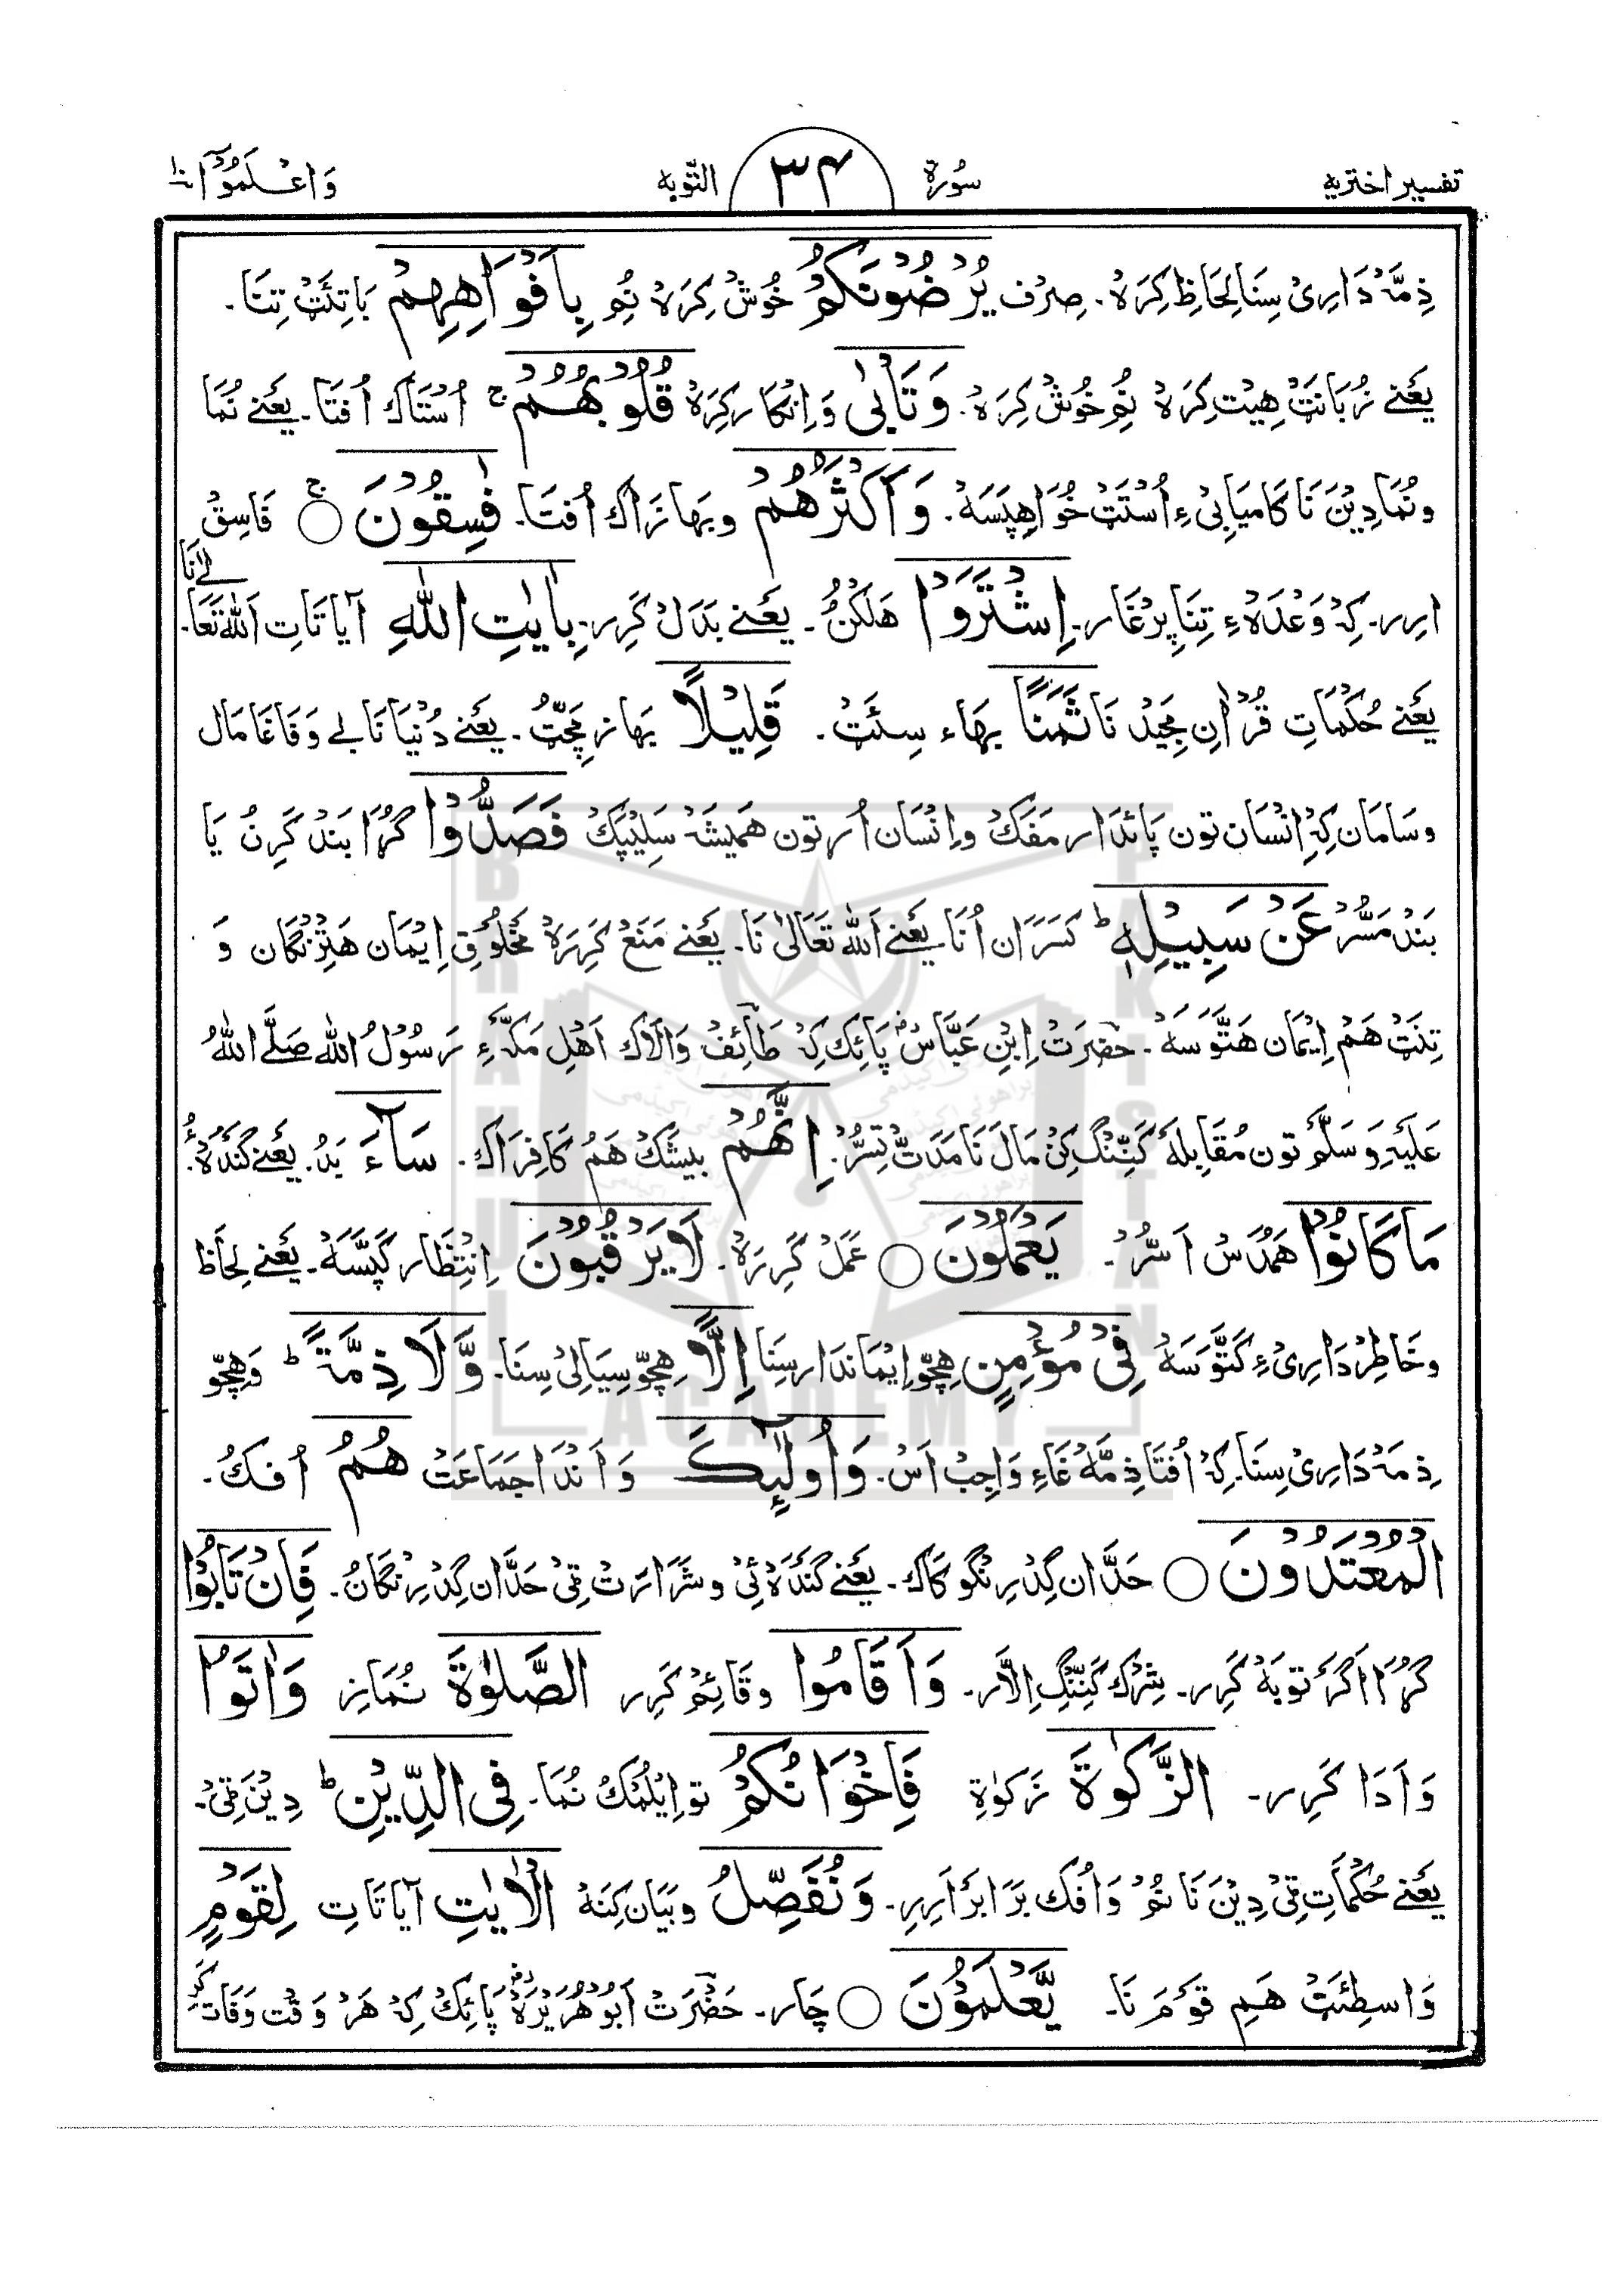 تفسیر اختریه سُورة ٣٤ التّوبه وَاعْلَمُوْآ ١٠
ذِمَّهْ دَارِیْ سِنَا لِحَاظ کِرَہْ۔ صِرْف یُرْضُوْنَکُمْ خُوْشْ کِرَہْ نُمِ بِاَفْوَاهِهِمْ بَاتِئَتْ تِنَا۔
یَعْنِے زُبَانَتْ هِیْت کِرَہْ نُمِ خُوْشْ کِرَہْ۔ وَتَأْبٰی وَاِنْکَار کِرَہْ قُلُوْبُهُمْ ج اُسْتَاکْ اُفْتَا۔ یَعْنِے نُمَا
و نُمَا دِیْنَ نَا کَامْیَابِیْ ءِ اُسْتَتْ خُوَاهِپَسَہْ۔ وَاَکْثَرُهُمْ و بَهَازَاکْ اُفْتَا۔ فٰسِقُوْنَ ○ ج فَاسِقْ
اَرِر۔ کِہْ وَعْدَہْ ءِ تِنَا پِرْغَار۔ اِشْتَرَوْا هَلْکُنُ۔ یَعْنِے بَدَل کَرِر۔ بِاٰیٰتِ اللّٰهِ آیَاتَاتِ اَللّٰه تَعَا۔لٰے نَا
یَعْنِے حُکْمَاتِ قُرْاٰنِ مَجِیْد نَا ثَمَنًا بَهَاء سِئَتْ۔ قَلِیْلًا بَهَاز مَچَّٹُ۔ یَعْنِے دُنْیَا نَا بے وَفَاغَا مَال
و سَامَان کِہْ اِنْسَان تون پَائَدَار مَفَکْ و اِنْسَان اُرتون هَمِیْشَہْ سَلِیْپَکْ فَصَدُّوْا گُڑَا بَنْد کَرِنُ یَا
بَنْد مَسُّرْ عَنْ سَبِیْلِهٖ ط کَسَرَان اُنَا یَعْنِے اَللّٰه تَعَالٰی نَا۔ یَعْنِے مَنَعْ کَرِرَہْ مَخْلُوْقِ اِیْمَان هَتِنْگَان وَ
تِنَتْ هَمْ اِیْمَان هَتَّوْسَہْ۔ حَضْرَتْ اِبْنِ عَبَّاسْ پَائِکْ کِہْ طَآئِفْ وَالَاکْ اَهْلِ مَکَّہْ ءِ رَسُوْلُ اللّٰه صَلَّے اللّٰهُ
عَلَیْہِ وَسَلَّمْ تون مُقَابِلَہْ کَنِّنْگ کِنْ مَال نَا مَدَتْ تِسُّرْ۔ اِنَّهُمْ بیشَکْ هَمْ کَافِرَاکْ۔ سَآءَ بَدُ۔ یَعْنِے گَنْدَہْ ءُ۔
مَا کَانُوْا هَمُدَسْ اَسُّرْ۔ یَعْمَلُوْنَ ○ عَمَلْ کَرِرَہْ۔ لَا یَرْقُبُوْنَ اِنْتِظَار کَپَسَّہْ۔ یَعْنِے لِحَاظ
و خَاطِرْدَارِیْ ءِ کَتَّوْسَہْ فِیْ مُؤْمِنٍ هِچّو اِیْمَانْدَار سِنَا اِلًّا هِچّو سِیَالِیْ سِنَا۔ وَّلَا ذِمَّةً ط وَهِچّو
ذِمَّہْ دَارِیْ سِنَا۔ کِہْ اُفْتَا ذِمَّہْ غَاءِ وَاجِبْ اَسْ۔ وَاُولٰٓئِکَ وَ اَنْدَا جَمَاعَتْ هُمُ اُفکُ۔
الْمُعْتَدُوْنَ ○ حَدَّان گِدْرِنْگو کَاکْ۔ یَعْنِے گَنْدَہْ ئِیْ و شَرَارَتْ ٹِیْ حَدَّان گِدْرِنْگَانُ۔ فَاِنْ تَابُوْا
گُڑَا اَگَرْ توبَہْ کَرِر۔ شِرْک کَنِّنْگ اِلَّار۔ وَاَقَامُوا و قَائِمْ کَرِر الصَّلٰوةَ نُمَازِ وَاٰتَوُا
وَ اَدَا کَرِر۔ الزَّکٰوةَ زَکٰوةِ فَاِخْوَانُکُمْ تو اِیْلُمْکْ نُمَا۔ فِی الدِّیْنِ ط دِیْنَ ٹِیْ۔
یَعْنِے حُکْمَاتِ ٹِیْ دِیْنَ نَا نُمْ وَ اُفک بَرَابَرْ اَرِرِ۔ وَنُفَصِّلُ و بَیَان کِنَہْ الْاٰیٰتِ آیَاتَاتِ لِقَوْمٍ
وَاسِطَئَتْ هَمِ قَوْمَ نَا۔ یَّعْلَمُوْنَ ○ چَار۔ حَضْرَتْ اَبُوْهُرَیْرَہْ پَائِکْ کِہْ هَرْ وَقْت وَفَات کرے
BRAHUI ACADEMY PAKISTAN
براھوئی اکیڈمی